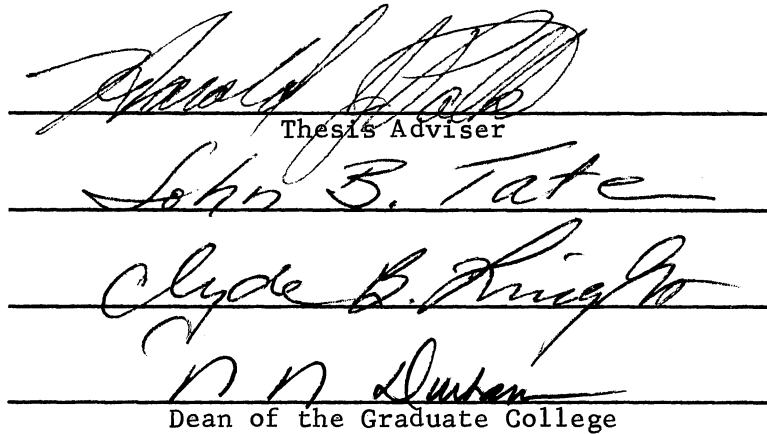 Harold J. Polk
Thesis Adviser
John B. Tate
Clyde B. Knight
N N Durham
Dean of the Graduate College